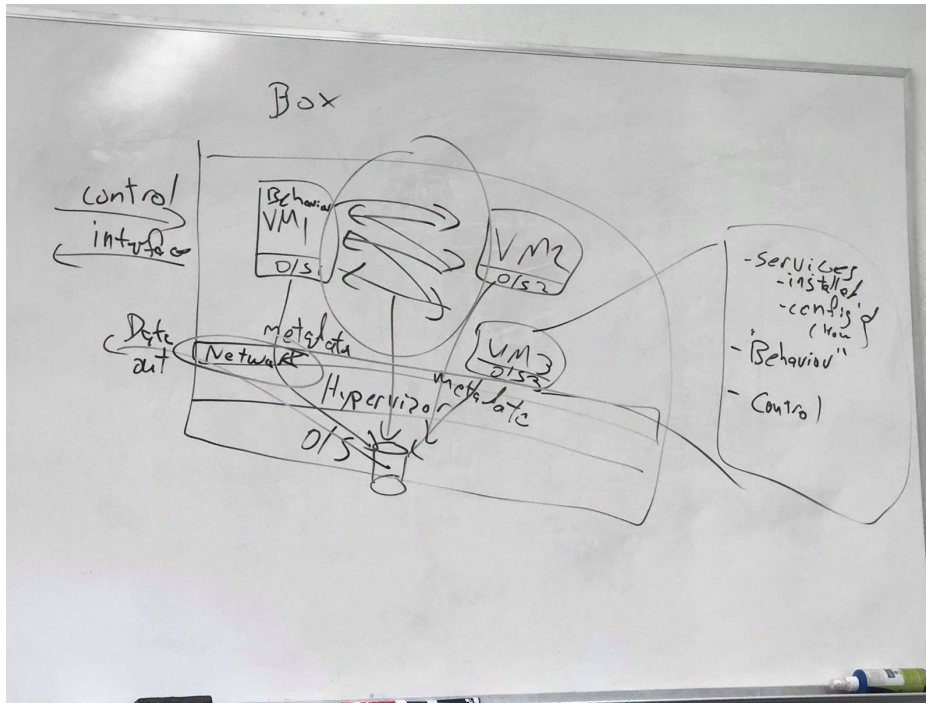 Box
control
interface
Behavior
VM1
O/S1
VM2
O/S2
VM3
O/S3
Data
out
metadata
Network
Hypervizor
metadata
O/S
- Services
- installed
- config
- "Behavior"
- Control